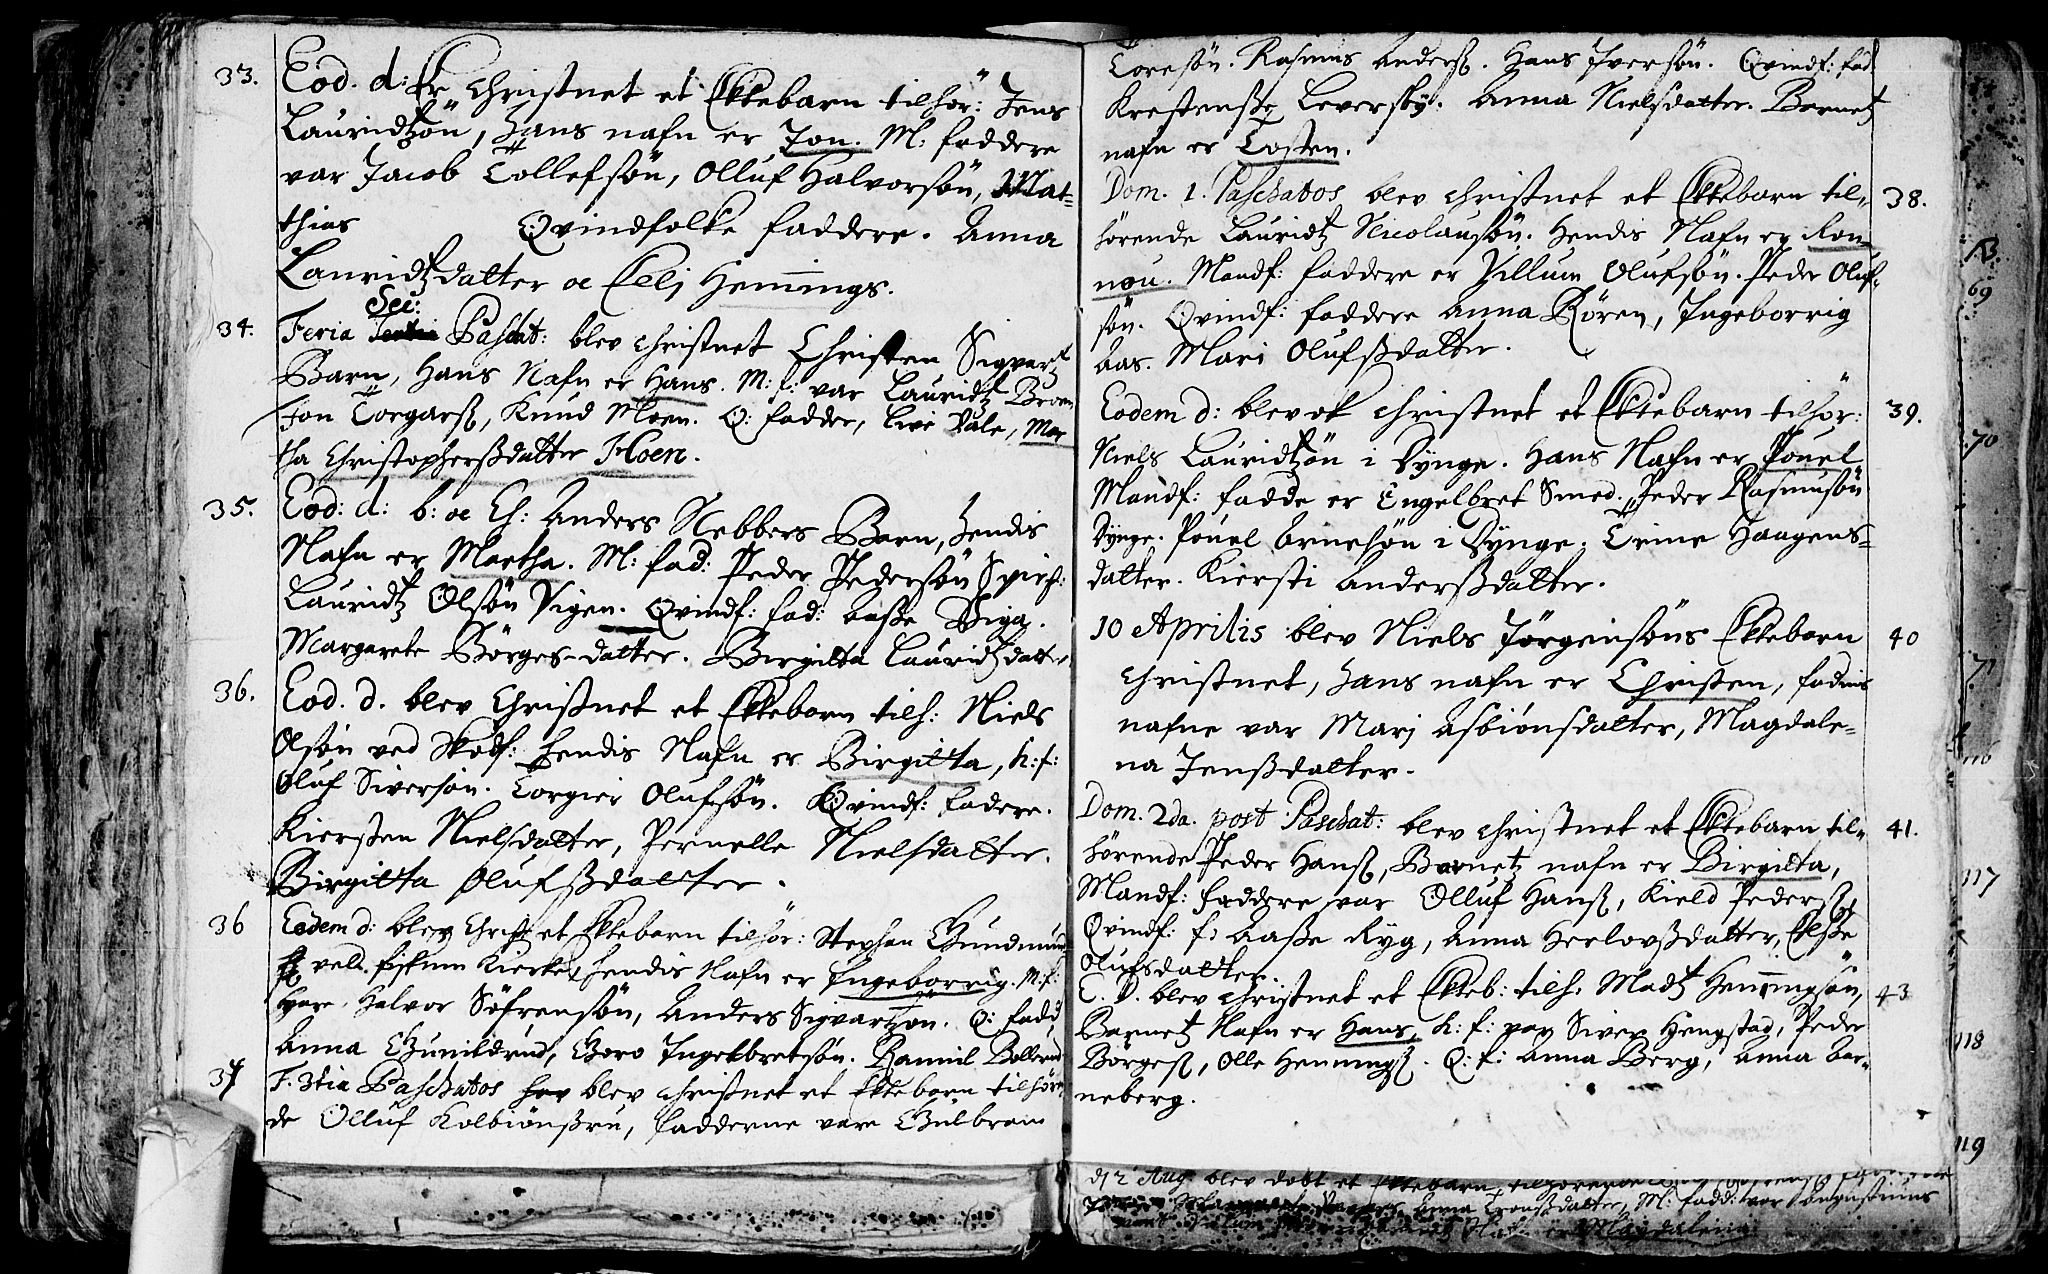 33. Eod. d: Er Christnet et Ektebarn tilhør: Jens
Lauridtzön, Hans nafn er Jon. M: faddere
var Jacob Tollefsön, Olluf Halvorsön, Mat-
thias Qvindfolke faddere. Anna
Lauridtzdatter oc Elej Hemings.
Sec:
34. Feria Paschat: blev christnet Christen Sigvartz
Barn, Hans Nafn er Hans. M: f: var Lauridtz Broen
Jon Torgarß, Knud Moen. Q: fadder, Live Dale, Mar
tha Christophersdatter Hoen.
35. Eod: d: b: oc Ch: Anders Nebbers Barn, Hendis
Nafn er Martha. M: fad: Peder Pedersön
Lauridtz Olsön Vigen. Qvindf: fad: Aaße Viga.
Margarete Börges-datter. Birgitta Lauridtzdatter
36. Eod. d. blev Christnet et Ektebarn tilh: Niels
Olsön ved Skodf: Hendis Nafn er Birgitta, h: f:
Oluf Siversön. Torgier Olufsön. Qvindf: fadere.
Kiersten Nielsdatter, Pernelle Nielsdatter.
Birgitta Olufsdatter.
36 Eodem d: blev Christ: et Ektebarn tilhör: Stephan Gudmund
ved fiskum Kierke, Hendis Nafn er Ingeborrig. M: f:
vare. Halvor Söfrensön, Anders Sigvartzön. Q: fadd
Anna Gunildrud, Goro Ingelbretsön. Rannil Bollerud
37 F. 3tia Paschatos blev christnet et Ektebarn tilhören
de Olluf Kolbiönsru, fadderne vare Gulbran
Toresön. Rasmus Anderß. Hans Iversön. Qvindf: fad
Krestenße Leversby. Anna Nielsdatter. Barnetz
nafn er Tosten.
Dom. 1. Paschatos blev christnet et Ektebarn til- 38.
hörende Lauridtz Nicolausön. Hendis Nafn er Ron
nou. Mandf: faddere er Villum Olufsön. Peder Oluf-
sön. Qvindf: faddere Anna Rören, Ingeborrig
Aas. Mari Olufsdatter.
Eodem d: blev ok christnet et Ektebarn tilhör: 39.
Niels Lauridtzön i Dynge. Hans Nafn er Pouel
Mandf: fadde er Engelbret Smed. Peder Rasmusön
Dynge. Pouel Arnesön i Dynge. Trine Haagens-
datter. Kiersti Andersdatter.
10 Aprilis blev Niels Jörgensöns Ektebarn 40
Christnet, Hans nafn er Christen, fadernis
nafne var Mari Asbiönsdatter, Magdale-
na Jensdatter.
Dom. 2da. post Paschat: blev christnet et Ektebarn til- 41.
hörende Peder Hanß, Barnetz nafn er Birgitta,
Mandf: faddere var Olluf Hanß, Kield Pederß,
Qvindf: f: Aaße Ryg, Anna Herlovsdatter, Elße
Olufsdatter.
E. D. blev christnet et Ekteb: tilh: Madtz Hemingsön, 43
Barnetz Nafn er Hans, h: f: var Siver Hengstad, Peder
Börgesß, Olle Hemingß. Q: f: Anna Berg, Anna Bar-
neberg.
d 12 Aug blev döbt et Ektebarn,
Anna Tronsdatter, M: fadd: var
er Magdalena
13.
69
70
71
116
117
118
119